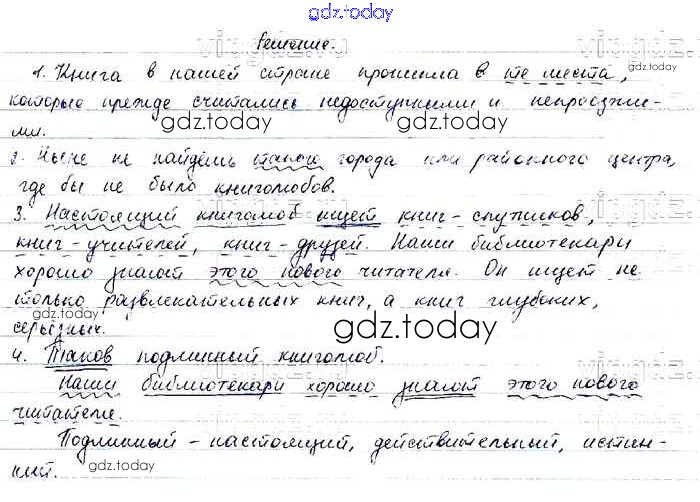 gdz.today
Решение.
1. Книга в нашей стране проникла в те места,
которые прежде считались недоступными и непроезжи-
ми.
gdz.today
gdz.today
2. Ныне не найдёшь такого города или районного центра,
где бы не было книголюбов.
3. Настоящий книголюб ищет книг-спутников,
книг-учителей, книг-друзей. Наши библиотекари
хорошо знают этого нового читателя. Он ищет не
только развлекательных книг, а книг глубоких,
серьёзных.
gdz.today
4. Таков подлинный книголюб.
Наши библиотекари хорошо знают этого нового
читателя.
Подлинный - настоящий, действительный, истин-
ный.
gdz.today